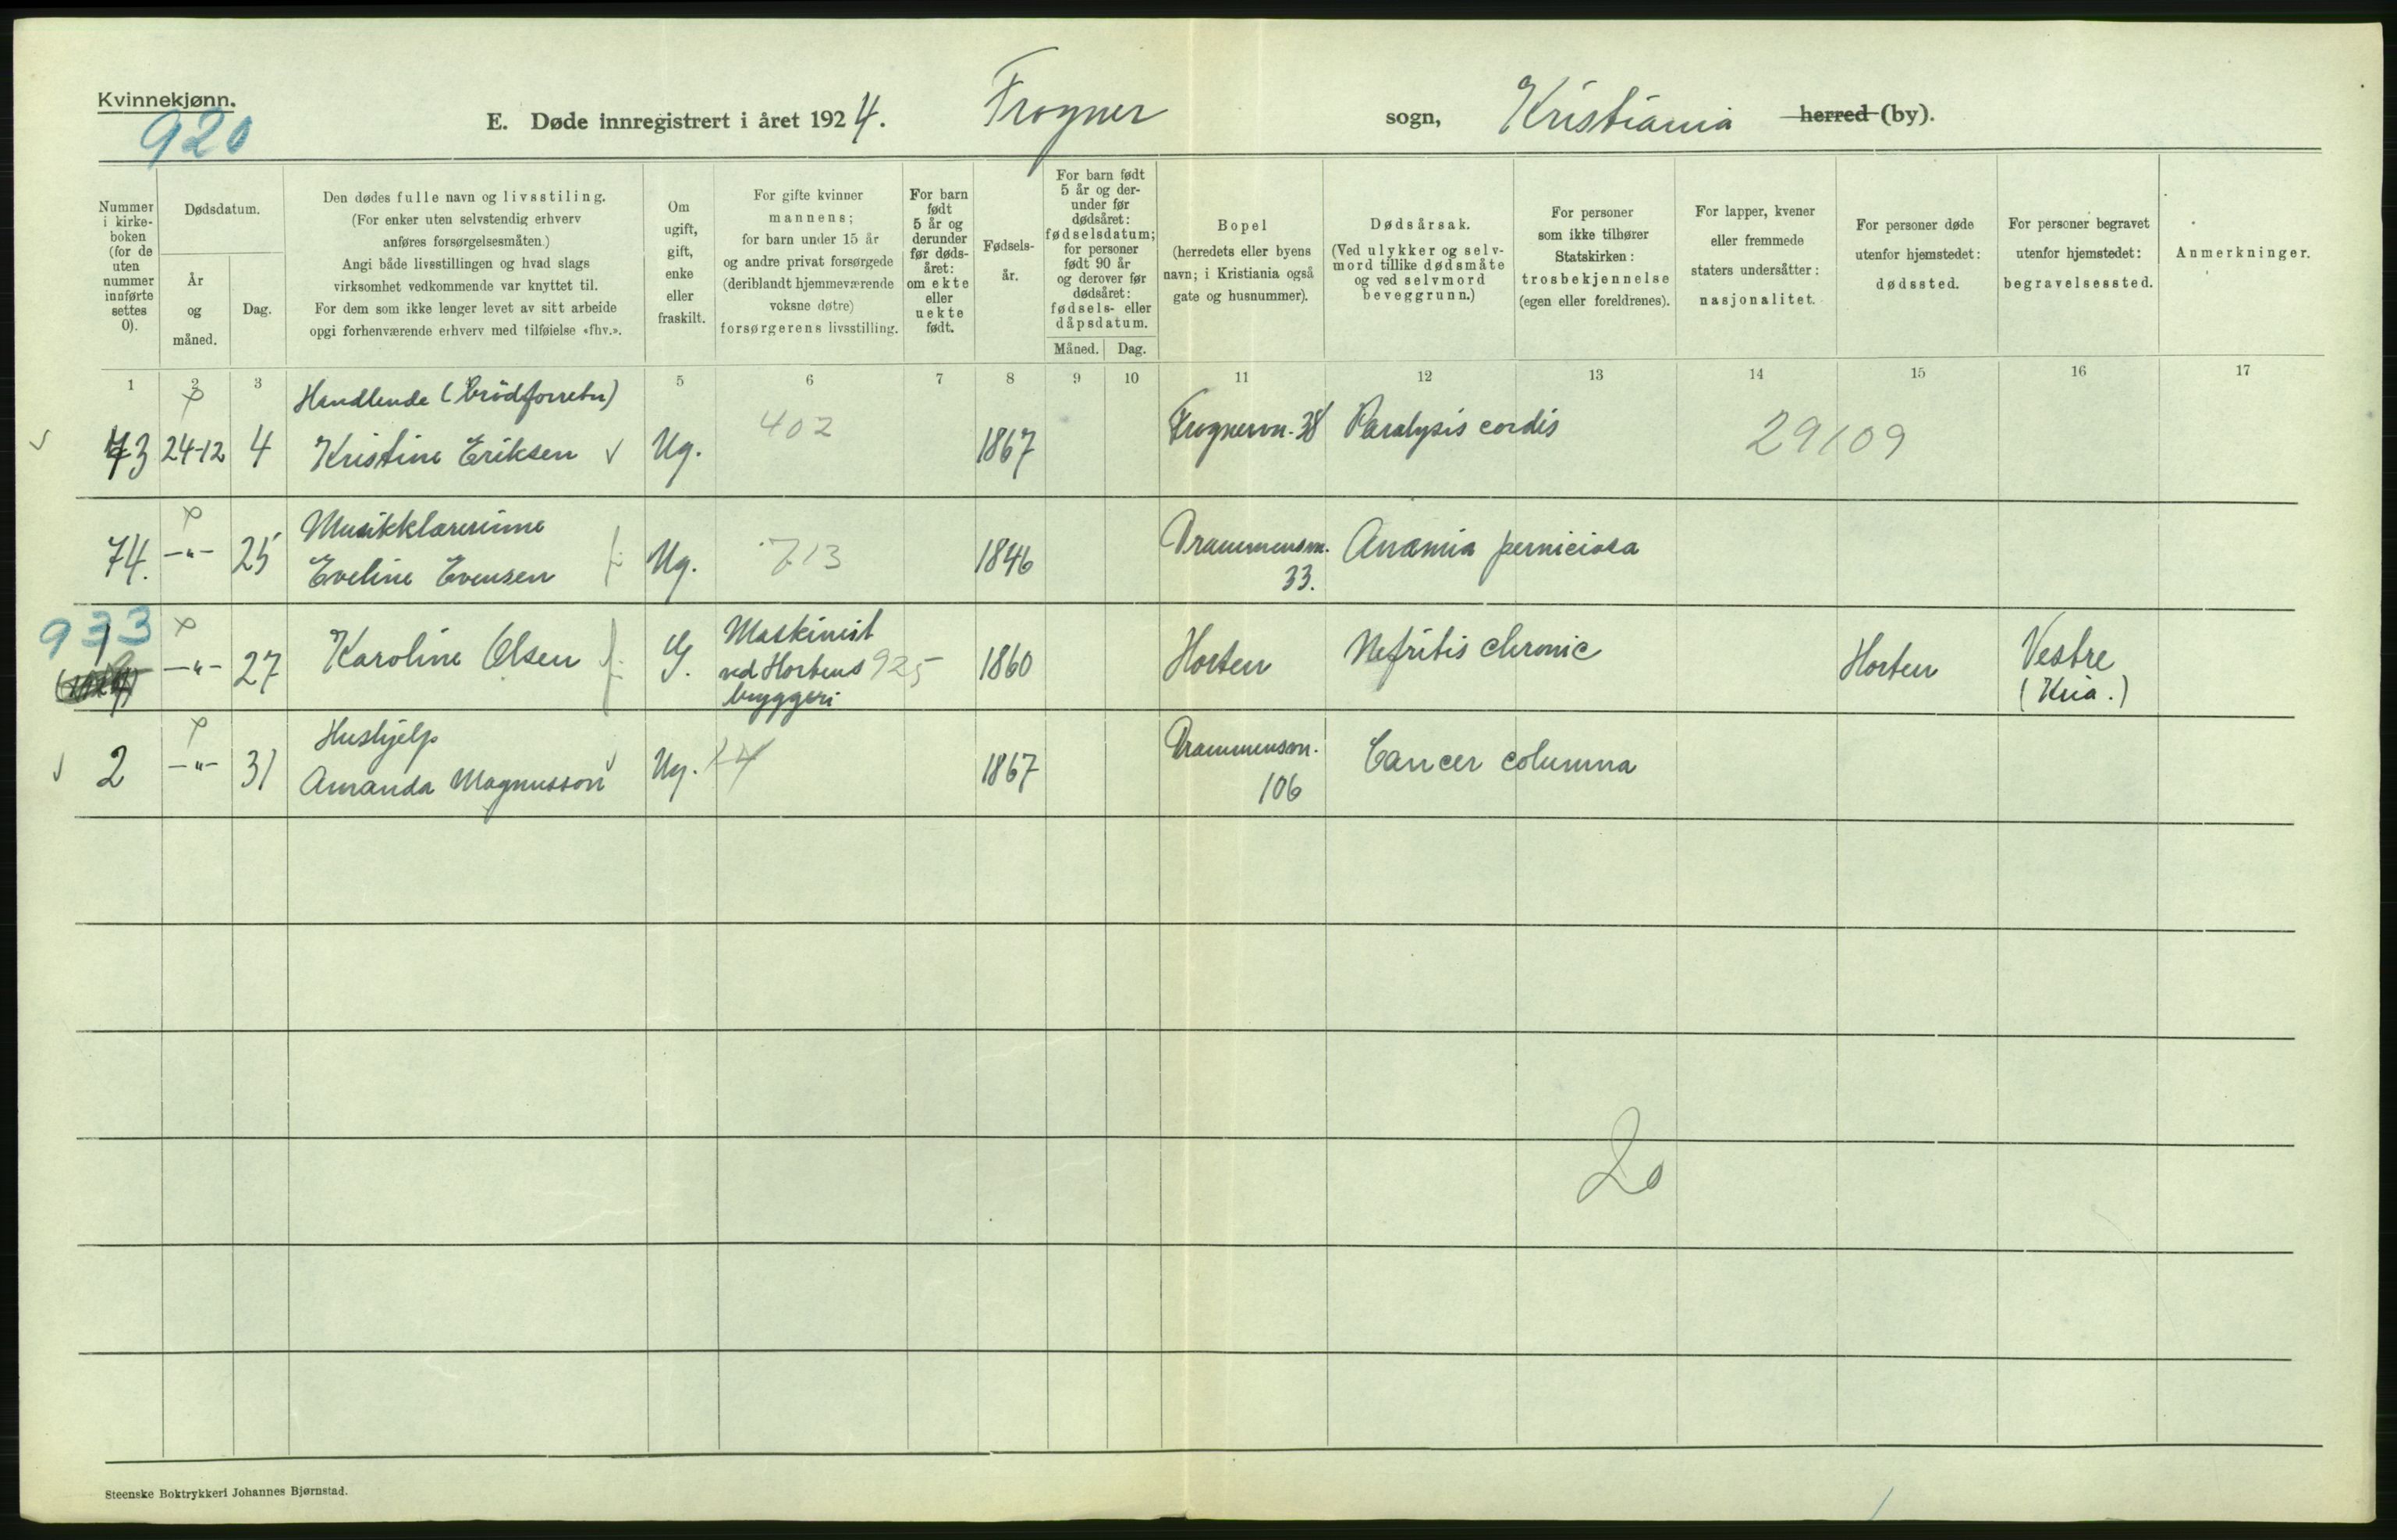 Kvinnekjønn.
920
E. Døde innregistrert i året 1924. Frogner sogn, Kristiania herred (by).
Nummer i kirke-boken (for de uten nummer innførte settes 0).
Dødsdatum.
År og måned.
Dag.
Den dødes fulle navn og livsstiling.
(For enker uten selvstendig erhverv
anføres forsørgelsesmåten.)
Angi både livsstillingen og hvad slags
virksomhet vedkommende var knyttet til.
For dem som ikke lenger levet av sitt arbeide
opgi forhenværende erhverv med tilføielse «fhv.».
Om ugift, gift, enke eller fraskilt.
For gifte kvinner
mannens;
for barn under 15 år
og andre privat forsørgede
(deriblandt hjemmeværende
voksne døtre)
forsørgerens livsstilling.
For barn født 5 år og derunder før døds-året: om ekte eller uekte født.
Fødsels-år.
For barn født
5 år og der-
under før
dødsåret:
fødselsdatum;
for personer
født 90 år
og derover før
dødsåret:
fødsels- eller
dåpsdatum.
Måned. Dag.
Bopel
(herredets eller byens
navn; i Kristiania også
gate og husnummer).
Dødsårsak.
(Ved ulykker og selv-
mord tillike dødsmåte
og ved selvmord
beveggrunn.)
For personer
som ikke tilhører
Statskirken:
trosbekjennelse
(egen eller foreldrenes).
For lapper, kvener
eller fremmede
staters undersåtter:
nasjonalitet.
For personer døde
utenfor hjemstedet:
dødssted.
For personer begravet
utenfor hjemstedet:
begravelsessted.
Anmerkninger.
1 2 3 5 6 7 8 9 10 11 12 13 14 15 16 17
Handlende (brödforretn)
73 24-12 4 Kristine Eriksen Ug. 402 1867 Frognervn. 38 Paralysis cordis 29109
Musikklærerinne
74. -"- 25 Eveline Evensen Ug. 713 1846 Drammensvn. 33. Anæmia perniciosa
933
1 -"- 27 Karoline Olsen G. Maskinist
ved Hortens 925
bryggeri
1860 Horten Nefritis chronic Horten Vestre
(Kria.)
Hushjelp
2 -"- 31 Amanda Magnusson Ug. 1867 Drammensvn.
106
Cancer columna
20
Steenske Boktrykkeri Johannes Bjørnstad.